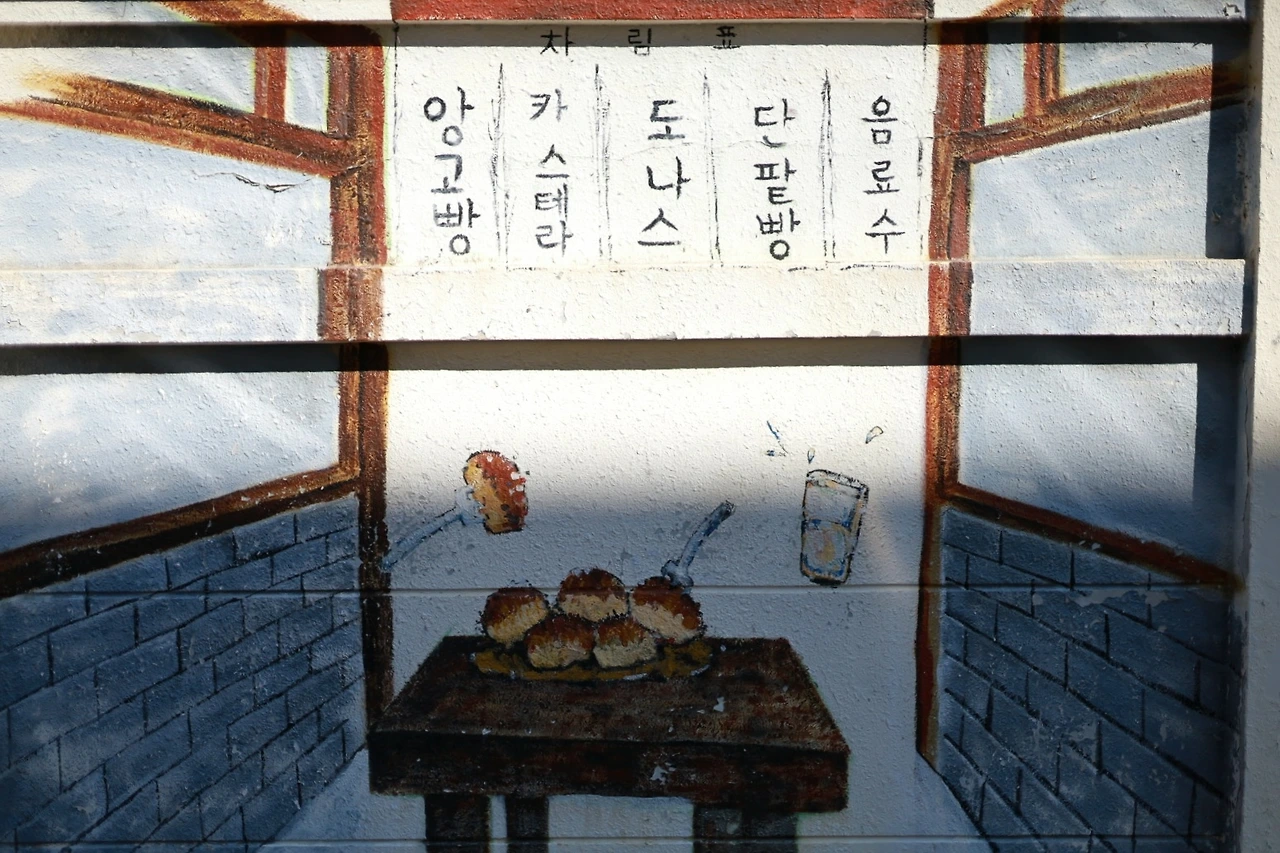 차림표
앙고빵
카스테라
도나스
단팥빵
음료수